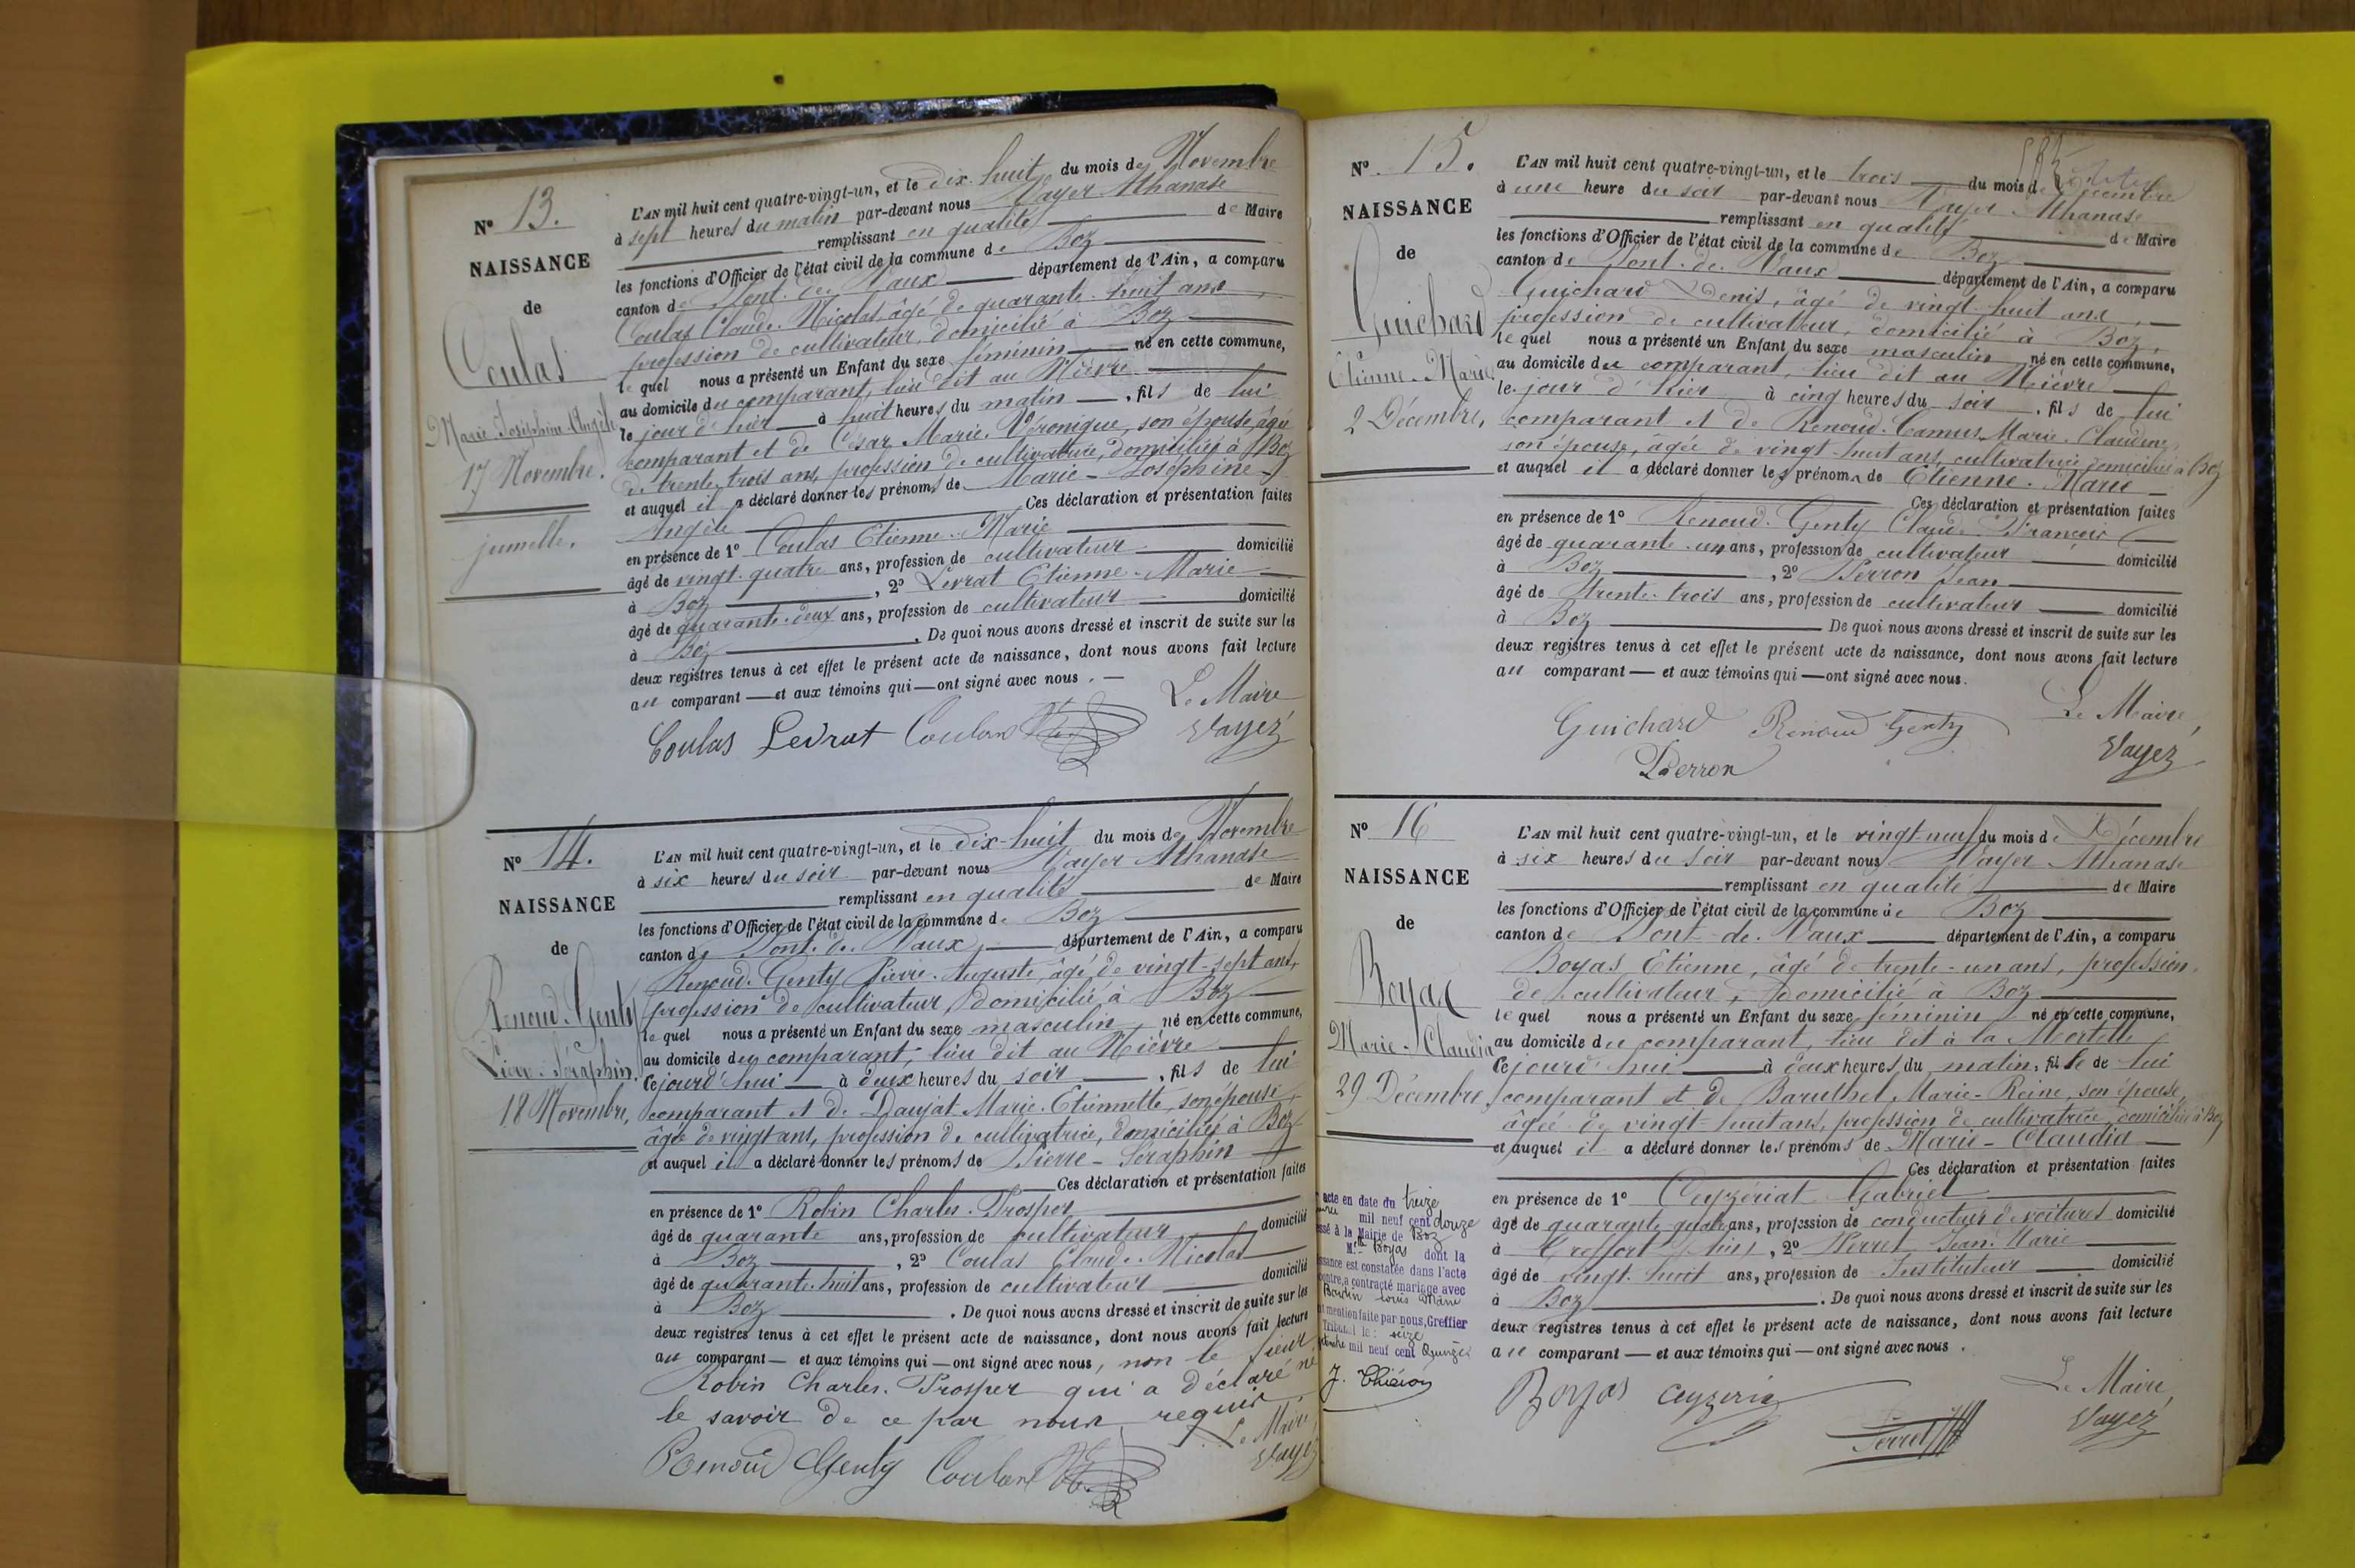 N° 13.
NAISSANCE
de
Coulas
Marie-Joséphine-Angèle
17 Novembre.
jumelle.
L'AN mil huit cent quatre-vingt-un, et le dix-huit du mois de Novembre
à sept heures du matin par-devant nous Vayer Athanase
remplissant en qualité de Maire
les fonctions d'Officier de l'état civil de la commune de Boz
canton de Pont-de-Vaux département de l'Ain, a comparu
Coulas Claude-Nicolas, âgé de quarante-huit ans,
profession de cultivateur, domicilié à Boz
lequel nous a présenté un Enfant du sexe féminin né en cette commune,
au domicile du comparant, lieu dit au Nièvre
le jour d'hier à huit heures du matin, fils de lui
comparant et de César Marie-Véronique, son épouse, âgée
de trente-trois ans, profession de cultivatrice, domiciliée à Boz
et auquel il a déclaré donner les prénoms de Marie-Joséphine-
Angèle Ces déclaration et présentation faites
en présence de 1° Coulas Etienne-Marie
âgé de vingt-quatre ans, profession de cultivateur domicilié
à Boz, 2° Levrat Etienne-Marie
âgé de quarante-deux ans, profession de cultivateur domicilié
à Boz. De quoi nous avons dressé et inscrit de suite sur les
deux registres tenus à cet effet le présent acte de naissance, dont nous avons fait lecture
au comparant — et aux témoins qui — ont signé avec nous. —
Le Maire
Coulas Levrat Coulas Vayer
N° 14.
NAISSANCE
de
Renoud-Genty
Pierre-Séraphin.
18 Novembre,
L'AN mil huit cent quatre-vingt-un, et le dix-huit du mois de Novembre
à six heures du soir par-devant nous Vayer Athanase
remplissant en qualité de Maire
les fonctions d'Officier de l'état civil de la commune de Boz
canton de Pont-de-Vaux, département de l'Ain, a comparu
Renoud-Genty Pierre-Auguste, âgé de vingt-sept ans,
profession de cultivateur, domicilié à Boz
lequel nous a présenté un Enfant du sexe masculin né en cette commune,
au domicile du comparant, lieu dit au Nièvre
cejourd'hui à deux heures du soir, fils de lui
comparant et de Daujat Marie-Etiennette, son épouse,
âgée de vingt ans, profession de cultivatrice, domiciliée à Boz
et auquel il a déclaré donner les prénoms de Pierre-Séraphin
Ces déclaration et présentation faites
en présence de 1° Robin Charles-Prosper
âgé de quarante ans, profession de cultivateur domicilié
à Boz, 2° Coulas Claude-Nicolas
âgé de quarante-huit ans, profession de cultivateur domicilié
à Boz. De quoi nous avons dressé et inscrit de suite sur les
deux registres tenus à cet effet le présent acte de naissance, dont nous avons fait lecture
au comparant — et aux témoins qui — ont signé avec nous, non le sieur
Robin Charles-Prosper qui a déclaré ne
le savoir de ce par nous requis.
Le Maire
Renoud Genty Coulas Vayer
N° 15.
NAISSANCE
de
Guichard
Etienne-Marie
2 Décembre,
L'AN mil huit cent quatre-vingt-un, et le trois du mois de Décembre
à une heure du soir par-devant nous Vayer Athanase
remplissant en qualité de Maire
les fonctions d'Officier de l'état civil de la commune de Boz
canton de Pont-de-Vaux département de l'Ain, a comparu
Guichard Denis, âgé de vingt-huit ans,
profession de cultivateur, domicilié à Boz,
lequel nous a présenté un Enfant du sexe masculin né en cette commune,
au domicile du comparant, lieu dit au Nièvre
le jour d'hier à cinq heures du soir, fils de lui
comparant et de Renoud-Camus Marie-Claudine,
son épouse, âgée de vingt-huit ans, cultivatrice domiciliée à Boz
et auquel il a déclaré donner les prénoms de Etienne-Marie
Ces déclaration et présentation faites
en présence de 1° Renoud-Genty Claude-François
âgé de quarante-un ans, profession de cultivateur domicilié
à Boz, 2° Perron Jean
âgé de trente-trois ans, profession de cultivateur domicilié
à Boz De quoi nous avons dressé et inscrit de suite sur les
deux registres tenus à cet effet le présent acte de naissance, dont nous avons fait lecture
au comparant — et aux témoins qui — ont signé avec nous.
Le Maire,
Guichard Renoud Genty
Perron Vayer
N° 16
NAISSANCE
de
Boyas
Marie-Claudia
29 Décembre,
L'AN mil huit cent quatre-vingt-un, et le vingt-neuf du mois de Décembre
à six heures du soir par-devant nous Vayer Athanase
remplissant en qualité de Maire
les fonctions d'Officier de l'état civil de la commune de Boz
canton de Pont-de-Vaux département de l'Ain, a comparu
Boyas Etienne, âgé de trente-un ans, profession
de cultivateur, domicilié à Boz
lequel nous a présenté un Enfant du sexe féminin né en cette commune,
au domicile du comparant, lieu dit à la Mortelle
cejourd'hui à deux heures du matin, fille de lui
comparant et de Baruthel Marie-Reine, son épouse,
âgée de vingt-huit ans, profession de cultivatrice domiciliée à Boz
et auquel il a déclaré donner les prénoms de Marie-Claudia
Ces déclaration et présentation faites
en présence de 1° Ceyzériat Gabriel
âgé de quarante quatre ans, profession de conducteur de voitures domicilié
à Treffort (Ain), 2° Perret Jean-Marie
âgé de vingt-huit ans, profession de Instituteur domicilié
à Boz. De quoi nous avons dressé et inscrit de suite sur les
deux registres tenus à cet effet le présent acte de naissance, dont nous avons fait lecture
au comparant — et aux témoins qui — ont signé avec nous.
Le Maire,
Boyas Perret Vayer
acte en date du treize
mil neuf cent douze
à la Mairie de Boz
M. Boyas dont la
naissance est constatée dans l'acte
contre, a contracté mariage avec
Louis Marie
mention faite par nous, Greffier
Tribunal le: seize
mil neuf cent